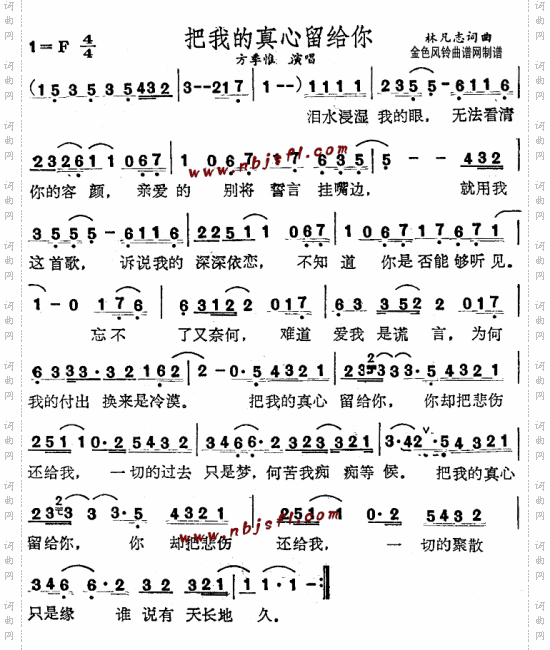 把我的真心留给你
1=F 4/4
方季惟 演唱
林凡志词曲
金色风铃曲谱网制谱
(1 5 3 5 3 5 4 3 2 | 3 - - 2 1 7 | 1 - -) 1 1 1 1 | 2 3 5 5 - 6 1 1 6 |
泪水浸湿 我的眼， 无法看清
2 3 2 6 1 1 0 6 7 | 1 0 6 7 6 3 5 | 5 - - 4 3 2 |
www.nbjsfl.com
你的容 颜， 亲爱 的 别将 誓言 挂嘴边， 就用我
3 5 5 5 - 6 1 1 6 | 2 2 5 1 1 0 6 7 | 1 0 6 7 1 7 6 7 1 |
这首歌， 诉说我的 深深依恋， 不知 道 你是否能够听见。
1 - 0 1 7 6 | 6 3 1 2 2 0 1 7 | 6 3 3 5 2 2 0 1 7 |
忘不 了又奈何， 难道 爱我 是谎 言， 为何
6 3 3 3·3 2 1 6 2 | 2 - 0·5 4 3 2 1 | 2 3 3 3 3·5 4 3 2 1 |
我的付出 换来是冷漠。 把我的真心 留给你， 你却把悲伤
2 5 1 1 0·2 5 4 3 2 | 3 4 6 6·2 3 2 3 3 2 1 | 3·4 2 v·5 4 3 2 1 |
还给我， 一切的过去 只是梦，何苦我痴 痴等 候。 把我的真心
2 3 3 3 3·5 4 3 2 1 | 2 5 1 1 0·2 5 4 3 2 |
www.nbjsfl.com
留给你， 你 却把悲伤 还给我， 一 切的聚散
3 4 6 6·2 3 2 3 2 1 | 1 1·1 - :|
只是缘 谁 说有 天长地 久。
词曲网